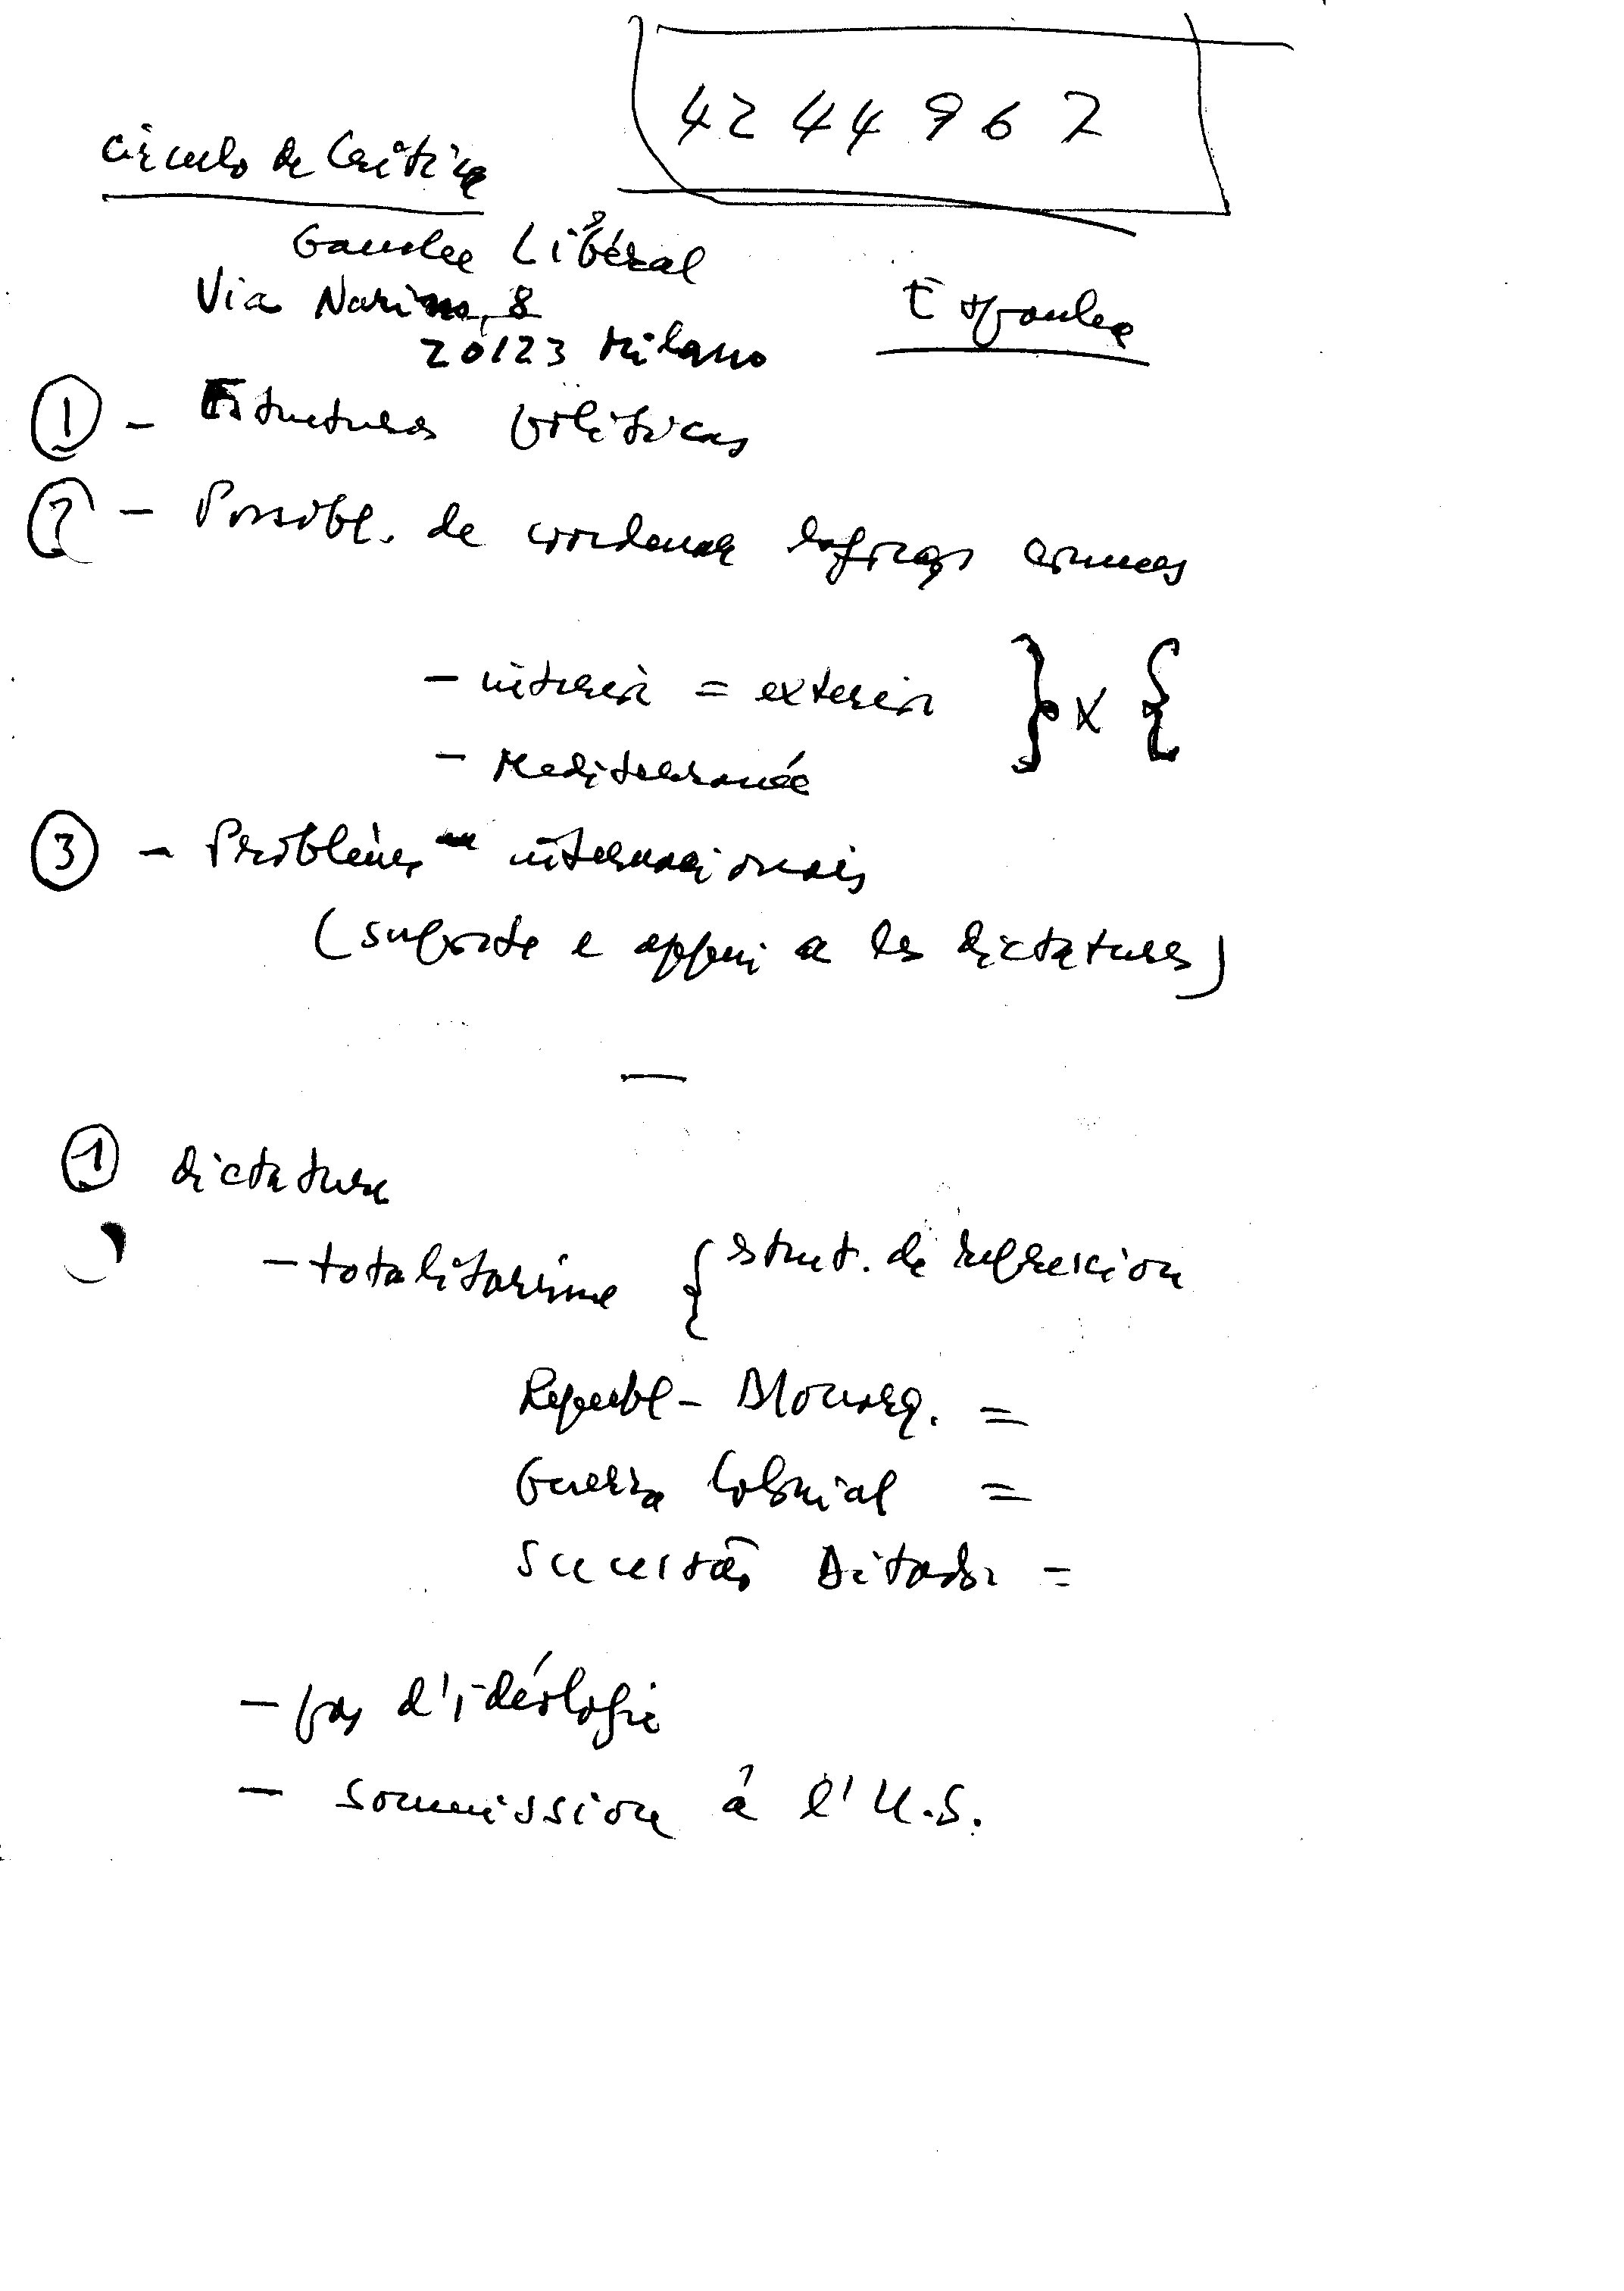 42 44 967
Circulo de Critica
Gauche Libéral
Via Narino, 8
20123 Milano
Espanha
① - Estructuras políticas
② - Possibl. de coordenar esforços comuns
- interior = exterior } X {
- Mediterranée
③ - Problèmes internacionais
(suporte e appui a les dictatures)
—
① dictature
- totalitarisme { strut. de repression
Republ - Monarq. =
Guerra Colonial =
Sucessão Ditador =
- pas d'idéologie
- soumission à l'U.S.